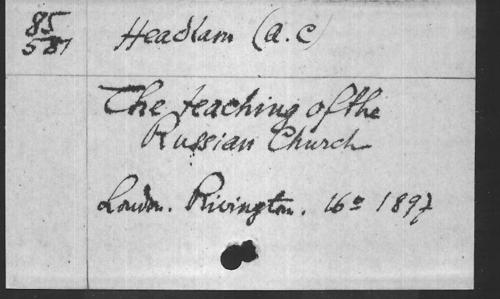 85
587
Headlam (A.C)
The teaching of the
Russian Church
London. Rivington. 16º 1897